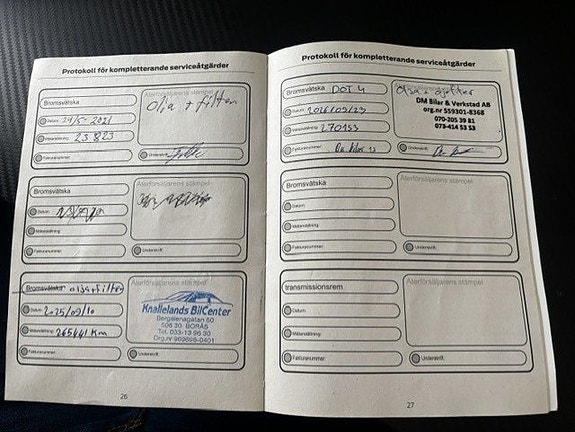 Protokoll för kompletterande serviceåtgärder
Bromsvätska
Återförsäljarens stämpel
Olja + filter
Datum: 24/5-2021
Mätarställning:
Fakturanummer:
Underskrift:
Bromsvätska
Återförsäljarens stämpel
Datum:
Mätarställning:
Fakturanummer:
Underskrift:
Bromsvätska olja+filter
Återförsäljarens stämpel
Knallelands BilCenter
506 30 BORÅS
Tel. 033-13 95 30
Org.nr 969696-0401
Datum: 2025/09/10
Mätarställning: 265441 Km
Fakturanummer:
Underskrift:
26
Protokoll för kompletterande serviceåtgärder
Bromsvätska DOT 4
DM Bilar & Verkstad AB
org.nr 559301-8368
070-205 39 81
073-414 53 53
Datum:
Mätarställning: 270153
Fakturanummer:
Underskrift:
Bromsvätska
Återförsäljarens stämpel
Datum:
Mätarställning:
Fakturanummer:
Underskrift:
transmissionsrem
Återförsäljarens stämpel
Datum:
Mätarställning:
Fakturanummer:
Underskrift:
27